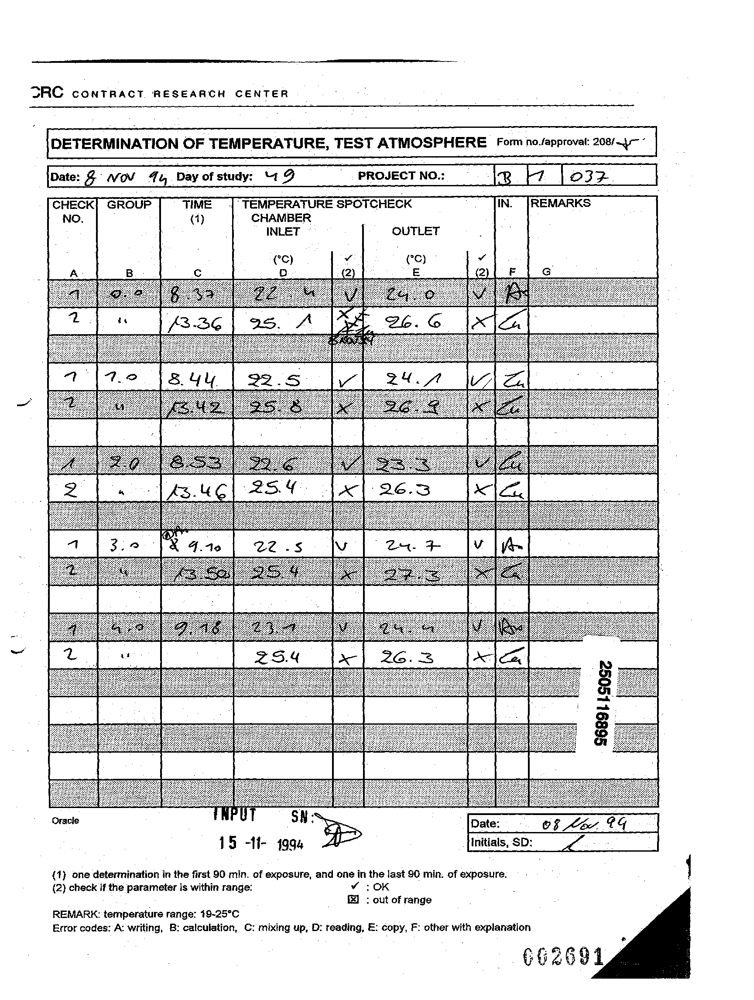 CRC CONTRACT RESEARCH CENTER
DETERMINATION OF TEMPERATURE, TEST ATMOSPHERE Form no./approval: 208/
Date: 8 NOV 94 Day of study: 49 PROJECT NO.: B 1 037
CHECK GROUP TIME TEMPERATURE SPOTCHECK IN. REMARKS
NO. (1) CHAMBER
INLET OUTLET
(°C) ✓ (°C) ✓
A B C D (2) E (2) F G
1 0.0 8.37 22.4 V 24.0 V
2 " 13.36 25.1 26.6 X
1 1.0 8.44 22.5 ✓ 24.1 ✓
2 " 13.42 25.8 X 26.9 X
1 2.0 8.53 22.6 ✓ 23.3 ✓
2 " 13.46 25.4 X 26.3 X
1 3.0 9.10 22.5 V 24.7 V
2 " 13.50 25.4 X 27.3 X
1 4.0 9.18 23.1 V 24.4 V
2 " 25.4 X 26.3 X
2505116895
Oracle
INPUT SN:
15 -11- 1994
Date: 08 Nov. 94
Initials, SD:
(1) one determination in the first 90 min. of exposure, and one in the last 90 min. of exposure.
(2) check if the parameter is within range: ✓ : OK
☒ : out of range
REMARK: temperature range: 19-25°C
Error codes: A: writing, B: calculation, C: mixing up, D: reading, E: copy, F: other with explanation
002691